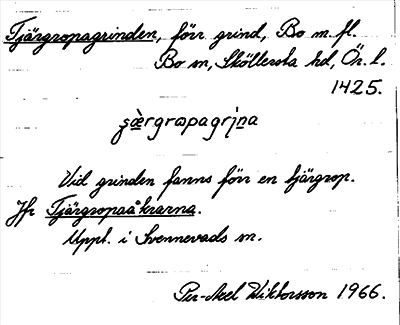 Tjärgropagrinden, förr grind, Bo m.fl.
Bo sn, Sköllersta hd, Ör. l.
1425.
Vid grinden fanns förr en tjärgrop.
Jfr Tjärgropaåkrarna.
Uppt. i Svennevads sn.
Per-Axel Wiktorsson 1966.